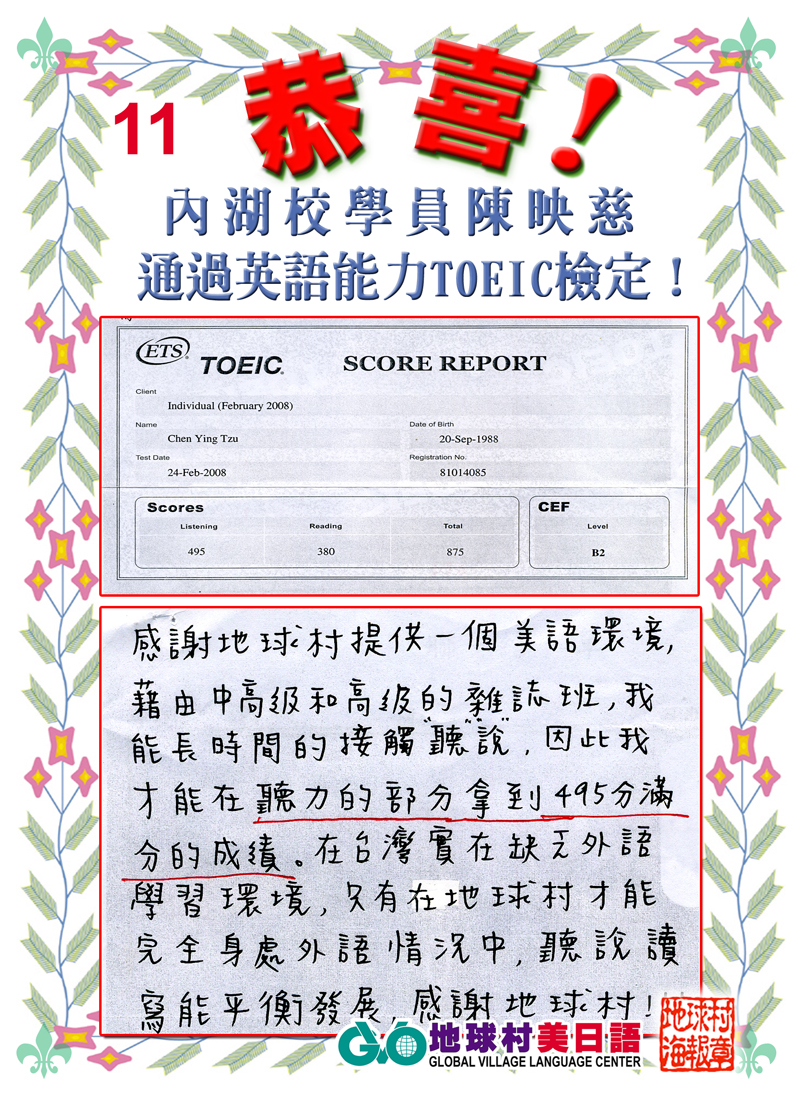 11
恭喜!
內湖校學員陳映慈
通過英語能力TOEIC檢定！
ETS® TOEIC® SCORE REPORT
Client
Individual (February 2008)
Name Date of Birth
Chen Ying Tzu 20-Sep-1988
Test Date Registration No.
24-Feb-2008 81014085
Scores CEF
Listening Reading Total Level
495 380 875 B2
感謝地球村提供一個美語環境,
藉由中高級和高級的雜誌班,我
能長時間的接觸"聽""說",因此我
才能在聽力的部分拿到495分滿
分的成績。在台灣實在缺乏外語
學習環境,只有在地球村才能
完全身處外語情況中,聽說讀
寫能平衡發展,感謝地球村!
GVO 地球村美日語
GLOBAL VILLAGE LANGUAGE CENTER
地球村
海報章